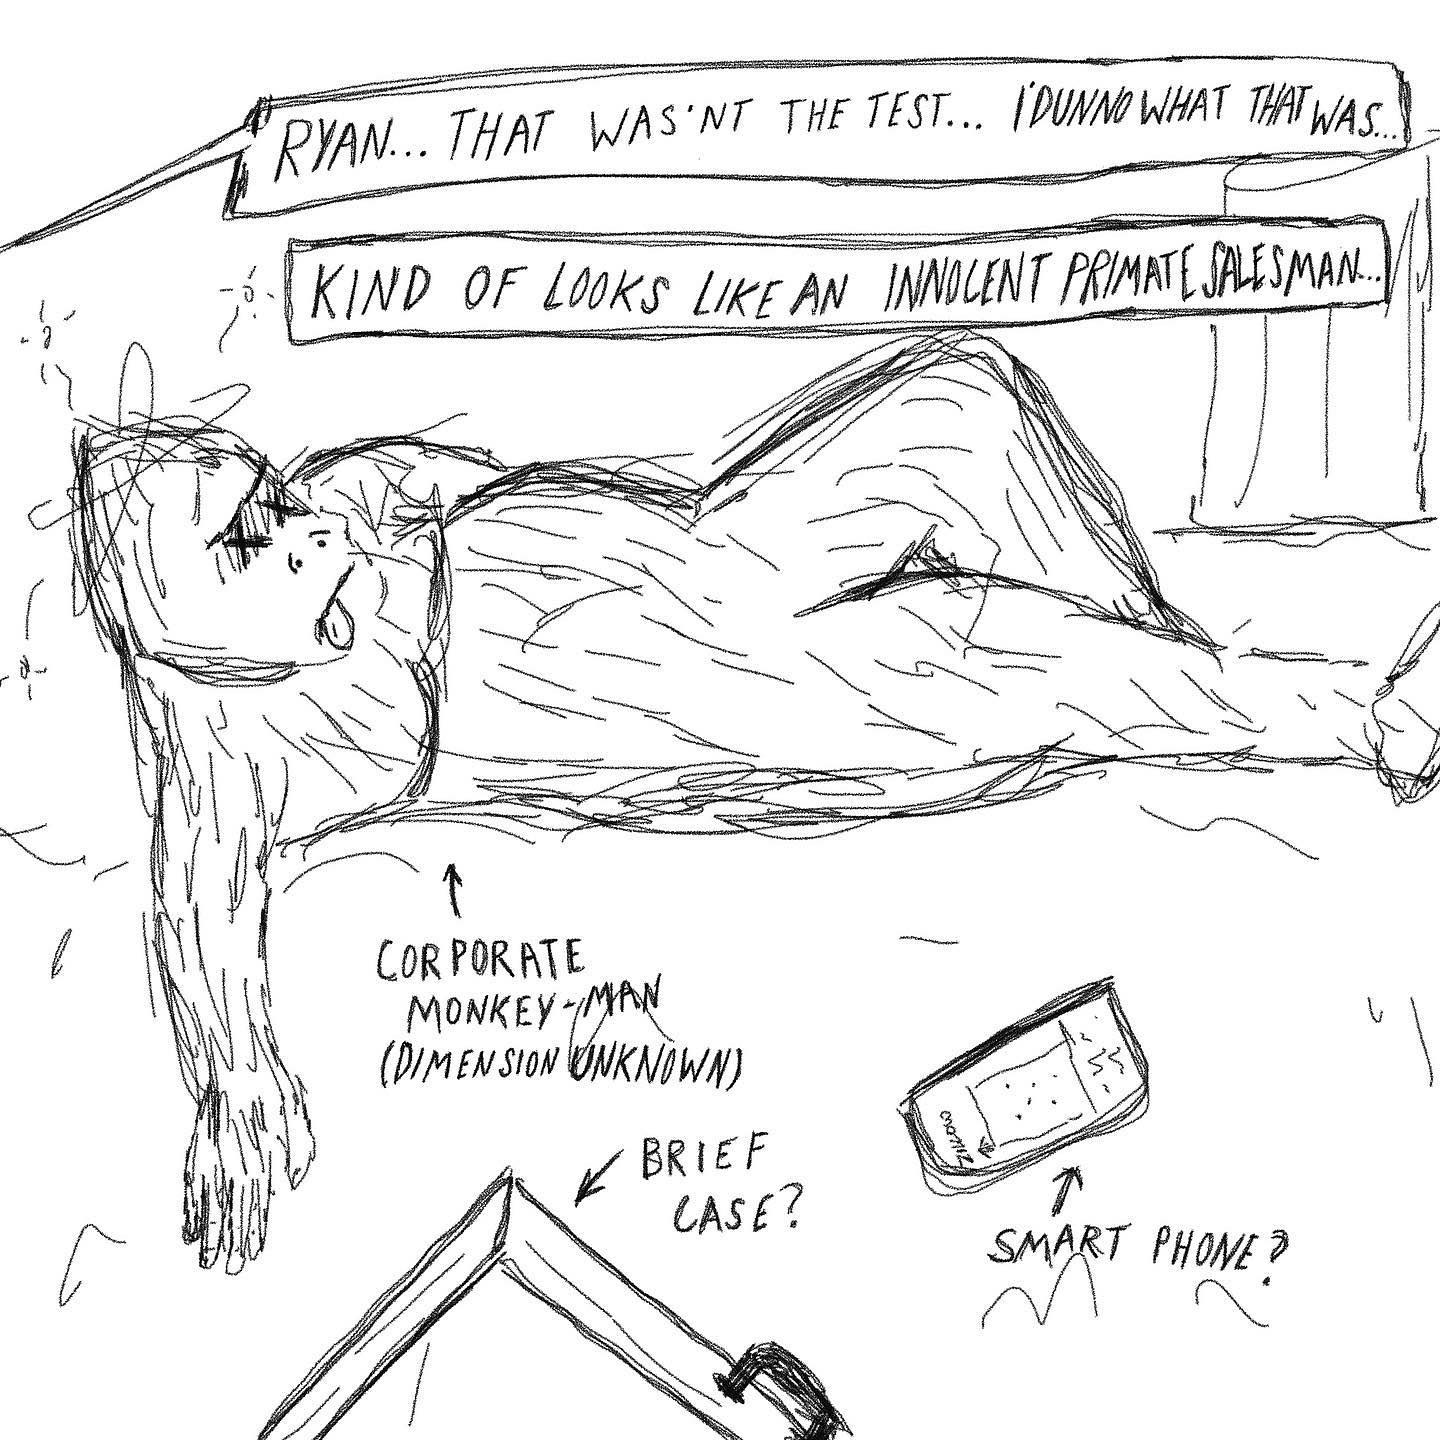 RYAN... THAT WAS'NT THE TEST... I'DUNNO WHAT THAT WAS...
KIND OF LOOKS LIKE AN INNOCENT PRIMATE SALESMAN...
CORPORATE
MONKEY-MAN
(DIMENSION UNKNOWN)
BRIEF
CASE?
SMART PHONE?